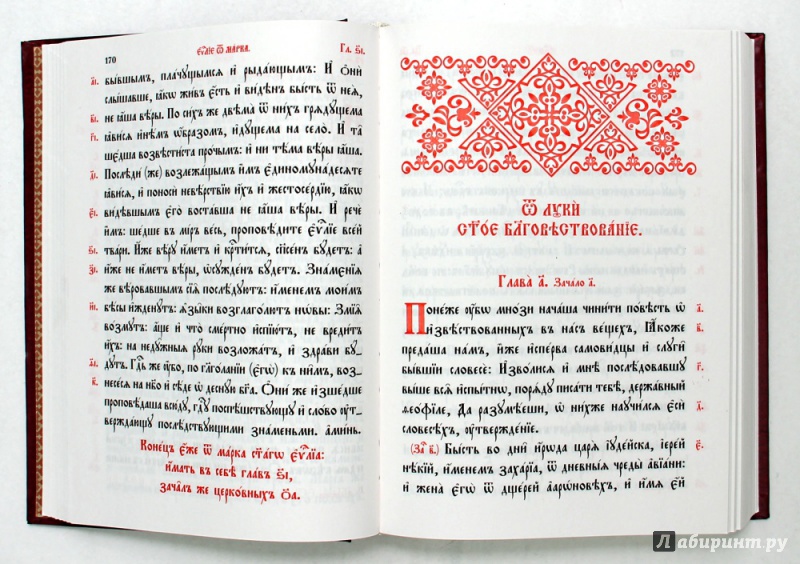 170 Є҆ѵⷢ҇лїе ѿ ма́рка. Гл. ѕ҃і.
а҃і. бы́вшымъ, пла́чꙋщымсѧ и҆ рыда́ющымъ: И҆ ѻ҆нѝ
слы́шавше, ꙗ҆́кѡ жи́въ є҆́сть и҆ ви́дѣнъ бы́сть ѿ неѧ̀,
в҃і. не ꙗ҆́ша вѣ́ры. По си́хъ же двѣма̀ ѿ ни́хъ грѧдꙋ́щема
г҃і. ꙗ҆ви́сѧ и҆нѣ́мъ ѡ҆́бразомъ, и҆дꙋ́щема на село̀. И҆ та̑
ше́дша возвѣсти́ста про́чымъ: и҆ ни тѣ́ма вѣ́ры ꙗ҆́ша.
д҃і. Послѣдѝ (же) возлежа́щымъ и҆̀мъ є҆диномꙋна́десѧте
ꙗ҆ви́сѧ, и҆ поносѝ невѣ́рствїю и҆́хъ и҆ жестосе́рдїю, ꙗ҆́кѡ
є҃і. ви́дѣвшымъ є҆го̀ воста́вша не ꙗ҆́ша вѣ́ры. И҆ речѐ
и҆̀мъ: ше́дше въ мі́ръ ве́сь, проповѣ́дите є҆ѵⷢ҇лїе все́й
ѕ҃і. тва́ри. И҆́же вѣ́рꙋ и҆́метъ и҆ крⷭ҇ти́тсѧ, сп҃се́нъ бꙋ́детъ: а҆
з҃і. и҆́же не и҆́метъ вѣ́ры, ѡ҆сꙋжде́нъ бꙋ́детъ. Зна́мєнїѧ
же вѣ́ровавшымъ сїѧ̑ послѣ́дꙋютъ: и҆́менемъ мои́мъ
и҃і. бѣ́сы и҆жденꙋ́тъ: ѧ҆зы̑ки возглаго́лютъ нѡ́вы: Ѕмїѧ̑
во́змꙋтъ: а҆́ще и҆ что̀ сме́ртно и҆спїю́тъ, не вреди́тъ
и҆́хъ: на недꙋ́жныѧ рꙋ́ки возложа́тъ, и҆ здра́ви бꙋ́-
ѳ҃і. дꙋтъ. Гдⷭ҇ь же ᲂу҆́бѡ, по гл҃го́ланїи (є҆гѡ̀) къ ни̑мъ, воз-
к҃. несе́сѧ на нб҃о и҆ сѣ́де ѡ҆деснꙋ́ю бг҃а. Ѻ҆ни́ же и҆зше́дше
проповѣ́даша всю́дꙋ, гдⷭ҇ꙋ поспѣ́шствꙋющꙋ и҆ сло́во ᲂу҆т-
вержда́ющꙋ послѣ́дствꙋющими зна́меньми. А҆ми́нь.
Коне́цъ є҆́же ѿ ма́рка ст҃а́гѡ є҆ѵⷢ҇лїа:
и҆́мать въ себѣ̀ гла́въ ѕ҃і,
зача́лъ же церко́вныхъ ѻ҃а.
Ѿ лꙋкѝ
ст҃о́е бл҃говѣствова́нїе.
Глава̀ а҃. Зача́ло а҃.
Поне́же ᲂу҆́бѡ мно́зи нача́ша чини́ти по́вѣсть ѡ҆ а҃.
и҆звѣ́ствованныхъ въ на́съ ве́щехъ, Ꙗ҆́коже в҃.
преда́ша на́мъ, и҆̀же и҆спе́рва самови́дцы и҆ слꙋги̑
бы́вшїи словесѐ: И҆зво́лисѧ и҆ мнѣ̀ послѣ́довавшꙋ г҃.
вы́ше всѧ̑ и҆спы́тнѡ, порѧ́дꙋ писа́ти тебѣ̀, держа́вный
ѳео́фїле, Да разꙋмѣ́еши, ѡ҆ ни́хже наꙋчи́лсѧ є҆сѝ д҃.
словесѣ́хъ, ᲂу҆твержде́нїе.
(За҄ в҃.) Бы́сть во дни̑ и҆́рѡда царѧ̀ і҆ꙋде́йска, і҆ере́й є҃.
нѣ́кїй, и҆́менемъ заха́рїа, ѿ дне́вныѧ чреды̀ а҆вїа́ни:
и҆ жена̀ є҆гѡ̀ ѿ дще́рей а҆арѡ́новѣхъ, и҆ и҆́мѧ є҆́й
Лабиринт.ру